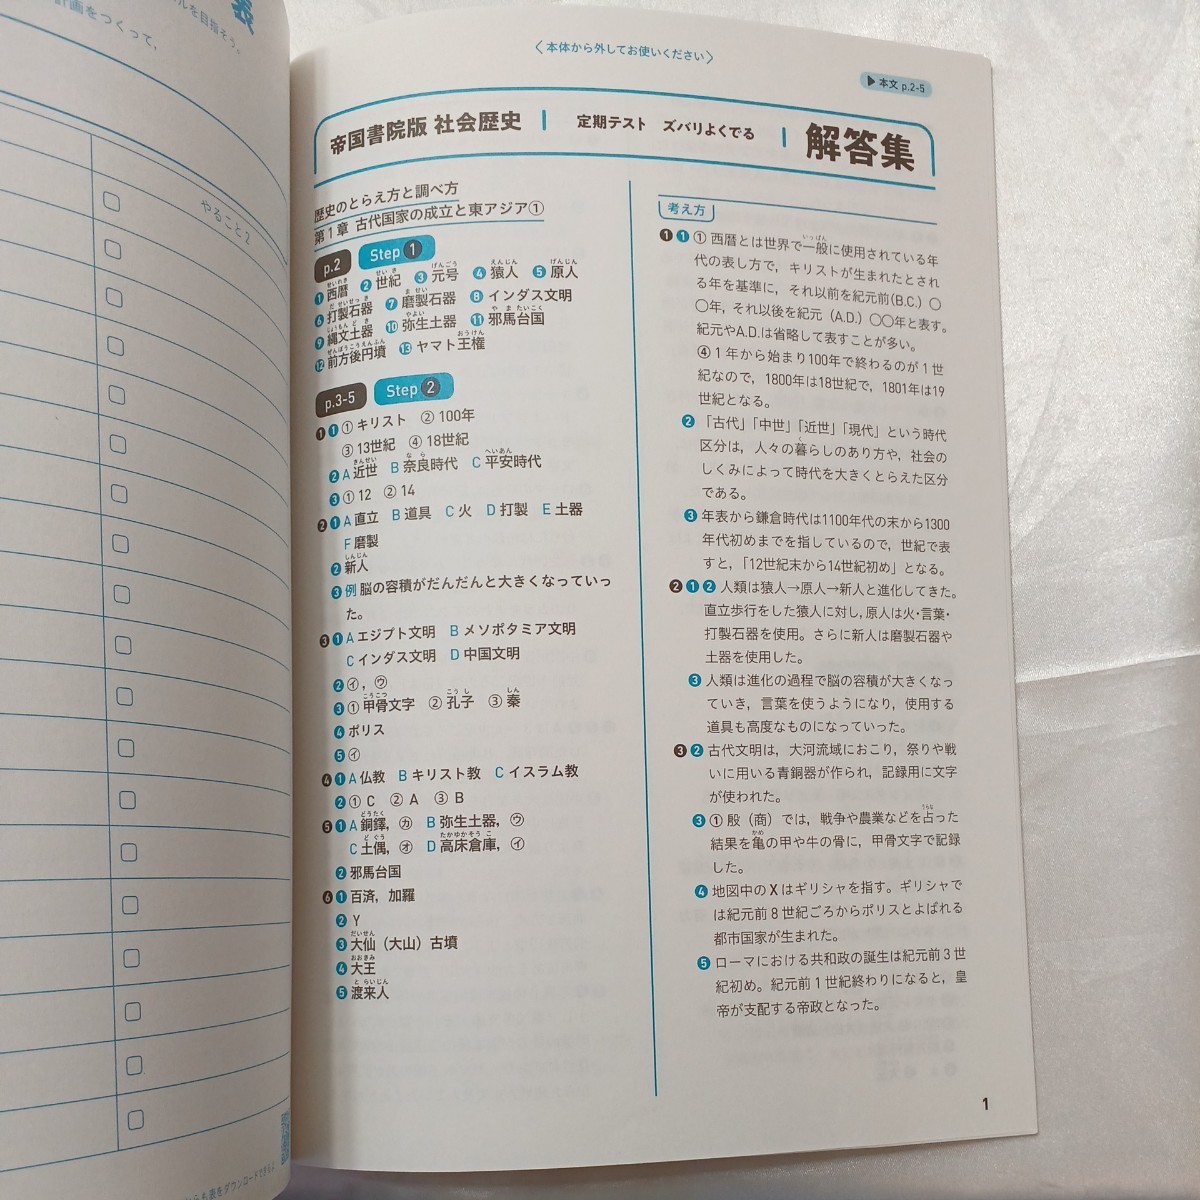 表
ルを目指そう。
計画をつくって、
やること2
〈本体から外してお使いください〉
▶本文 p.2-5
帝国書院版 社会歴史 | 定期テスト ズバリよくでる | 解答集
歴史のとらえ方と調べ方
第1章 古代国家の成立と東アジア①
p.2 Step ❶
❶西暦 ❷世紀 ❸元号 ❹猿人 ❺原人
❻打製石器 ❼磨製石器 ❽インダス文明
❾縄文土器 ❿弥生土器 ⓫邪馬台国
⓬前方後円墳 ⓭ヤマト王権
p.3-5 Step ❷
❶❶①キリスト ②100年
③13世紀 ④18世紀
❷A近世 B奈良時代 C平安時代
❸①12 ②14
❷❶A直立 B道具 C火 D打製 E土器
F磨製
❷新人
❸例 脳の容積がだんだんと大きくなっていっ
た。
❸❶Aエジプト文明 Bメソポタミア文明
Cインダス文明 D中国文明
❷㋑，㋒
❸①甲骨文字 ②孔子 ③秦
❹ポリス
❺㋑
❹❶A仏教 Bキリスト教 Cイスラム教
❷①C ②A ③B
❺❶A銅鐸，㋕ B弥生土器，㋒
C土偶，㋔ D高床倉庫，㋑
❷邪馬台国
❻❶百済，加羅
❷Y
❸大仙（大山）古墳
❹大王
❺渡来人
考え方
❶❶①西暦とは世界で一般に使用されている年
代の表し方で，キリストが生まれたとされ
る年を基準に，それ以前を紀元前(B.C.)〇
〇年，それ以後を紀元（A.D.）〇〇年と表す。
紀元やA.D.は省略して表すことが多い。
④1年から始まり100年で終わるのが1世
紀なので，1800年は18世紀で，1801年は19
世紀となる。
❷「古代」「中世」「近世」「現代」という時代
区分は，人々の暮らしのあり方や，社会の
しくみによって時代を大きくとらえた区分
である。
❸年表から鎌倉時代は1100年代の末から1300
年代初めまでを指しているので，世紀で表
すと，「12世紀末から14世紀初め」となる。
❷❶❷人類は猿人→原人→新人と進化してきた。
直立歩行をした猿人に対し，原人は火・言葉・
打製石器を使用。さらに新人は磨製石器や
土器を使用した。
❸人類は進化の過程で脳の容積が大きくなっ
ていき，言葉を使うようになり，使用する
道具も高度なものになっていった。
❸❷古代文明は，大河流域におこり，祭りや戦
いに用いる青銅器が作られ，記録用に文字
が使われた。
❸①殷（商）では，戦争や農業などを占った
結果を亀の甲や牛の骨に，甲骨文字で記録
した。
❹地図中のXはギリシャを指す。ギリシャで
は紀元前8世紀ごろからポリスとよばれる
都市国家が生まれた。
❺ローマにおける共和政の誕生は紀元前3世
紀初め。紀元前1世紀終わりになると，皇
帝が支配する帝政となった。
1